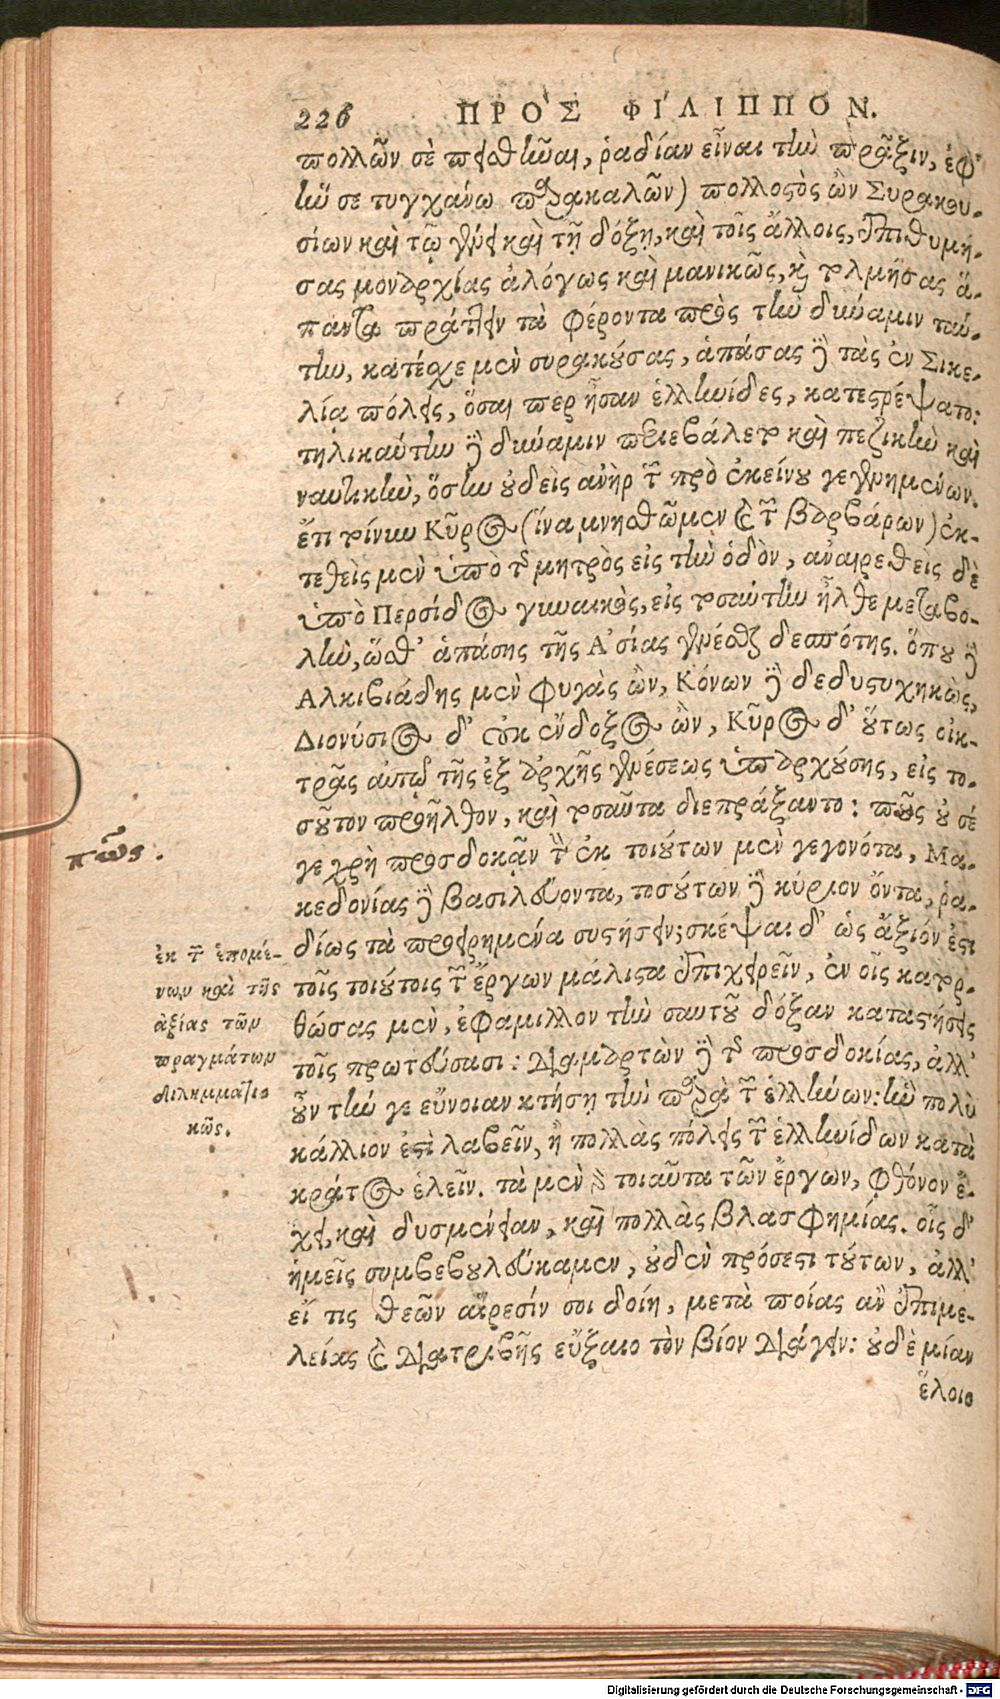 226 ΠΡΟΣ ΦΙΛΙΠΠΟΝ.
πολλῶν σὲ πειθῆναι, ῥᾳδίαν εἶναι τὴν πρᾶξιν, ἐφ'
ἥν σε τυγχάνω παρακαλῶν) πολλοστὸς ὢν Συρακου-
σίων καὶ τῷ γένει καὶ τῇ δόξῃ, καὶ τοῖς ἄλλοις, ἐπιθυμή-
σας μοναρχίας ἀλόγως καὶ μανικῶς, καὶ τολμήσας ἅ-
παντα πράττειν τὰ φέροντα πρὸς τὴν δύναμιν ταύ-
την, κατέσχε μὲν συρακούσας, ἁπάσας δὲ τὰς ἐν Σικε-
λίᾳ πόλεις, ὅσαι περ ἦσαν ἑλληνίδες, κατεστρέψατο:
τηλικαύτην δὲ δύναμιν περιεβάλετο καὶ πεζικὴν καὶ
ναυτικὴν, ὅσην οὐδεὶς ἀνὴρ τῶν πρὸ ἐκείνου γεγενημένων.
ἔτι τοίνυν Κῦρος (ἵνα μνησθῶμεν καὶ τῶν βαρβάρων) ἐκ-
τεθεὶς μὲν ὑπὸ τῆς μητρὸς εἰς τὴν ὁδὸν, ἀναιρεθεὶς δὲ
ὑπὸ Περσίδος γυναικὸς, εἰς τοσαύτην ἦλθε μεταβο-
λὴν, ὥσθ' ἁπάσης τῆς Ἀσίας γενέσθαι δεσπότης. ὅπου δὲ
Ἀλκιβιάδης μὲν φυγὰς ὢν, Κόνων δὲ δεδυστυχηκὼς,
Διονύσιος δ' οὐκ ἔνδοξος ὢν, Κῦρος δ' οὕτως οἰκ-
τρᾶς αὐτῷ τῆς ἐξ ἀρχῆς γενέσεως ὑπαρχούσης, εἰς το-
σοῦτον προῆλθον, καὶ τοσαῦτα διεπράξαντο: πῶς οὐ σέ
γε χρὴ προσδοκᾷν τὸν ἐκ τοιούτων μὲν γεγονότα, Μα-
κεδονίας δὲ βασιλεύοντα, τοσούτων δὲ κύριον ὄντα, ῥα-
δίως τὰ προειρημένα συστήσειν; σκέψαι δ' ὡς ἄξιόν ἐστι
τοῖς τοιούτοις τῶν ἔργων μάλιστα ἐπιχειρεῖν, ἐν οἷς κατορ-
θώσας μὲν, ἐφάμιλλον τὴν σαυτοῦ δόξαν καταστήσεις
τοῖς πρωτεύσασι: διαμαρτὼν δὲ τῆς προσδοκίας, ἀλλ'
οὖν τήν γε εὔνοιαν κτήσῃ τὴν παρὰ τῶν ἑλλήνων: ἣν πολὺ
κάλλιον ἐστὶ λαβεῖν, ἢ πολλὰς πόλεις τῶν ἑλληνίδων κατὰ
κράτος ἑλεῖν. τὰ μὲν γὰρ τοιαῦτα τῶν ἔργων, φθόνον ἔ-
χει, καὶ δυσμένειαν, καὶ πολλὰς βλασφημίας. οἷς δ'
ἡμεῖς συμβεβουλεύκαμεν, οὐδὲν πρόσεστι τούτων, ἀλλ'
εἴ τις θεῶν αἵρεσίν σοι δοίη, μετὰ ποίας ἂν ἐπιμε-
λείας καὶ διατριβῆς εὔξαιο τὸν βίον διάγειν: οὐδὲ μίαν
ἕλοιο
πῶς.
ἐκ τῶν ἑπομέ-
νων καὶ τῆς
ἀξίας τῶν
πραγμάτων
διλημματι
κῶς.
Digitalisierung gefördert durch die Deutsche Forschungsgemeinschaft - DFG